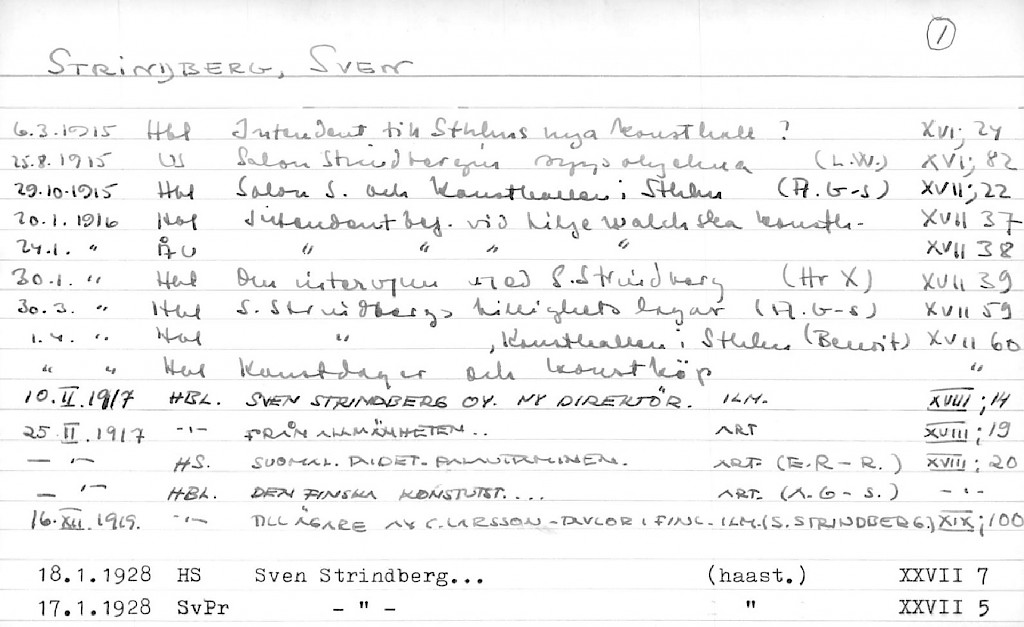 1
STRINDBERG, SVEN
6.3.1915 Hbl Intendent till Sthlms nya konsthall ? XVI; 24
25.8.1915 US Salon Strindbergin (L.W.) XVI; 82
29.10.1915 Hbl Salon S. och Konsthallen i Sthlm (A. G-s) XVII; 22
20.1.1916 Hbl Intendentbef. vid Liljewalchska konsth- XVII 37
24.1. " ÅU " " " " XVII 38
30.1. " Hbl En intervju med S. Strindberg (Hr X) XVII 39
30.3. " Hbl S. Strindbergs (A. G-s) XVII 59
1.4. " Hbl " , Konsthallen i Sthlm (Benoit) XVII 60
" " Hbl Konstdager och konstköp "
10.II.1917 HBL. SVEN STRINDBERG OY. NY DIREKTÖR. ILM. XVIII; 14
25 II.1917 -"- FRÅN ALLMÄNHETEN.. ART XVIII; 19
- "- HS. SUOMAL. TAIDET. ART. (E.R-R.) XVIII; 20
- "- HBL. DEN FINSKA KONSTUTST.... ART. (A.G-S.) -"-
16.XII.1919. -"- TILL ÄGARE AV C. LARSSON-TAVLOR I FINL. ILM. (S. STRINDBERG.) XIX; 100
18.1.1928 HS Sven Strindberg... (haast.) XXVII 7
17.1.1928 SvPr - " - " XXVII 5